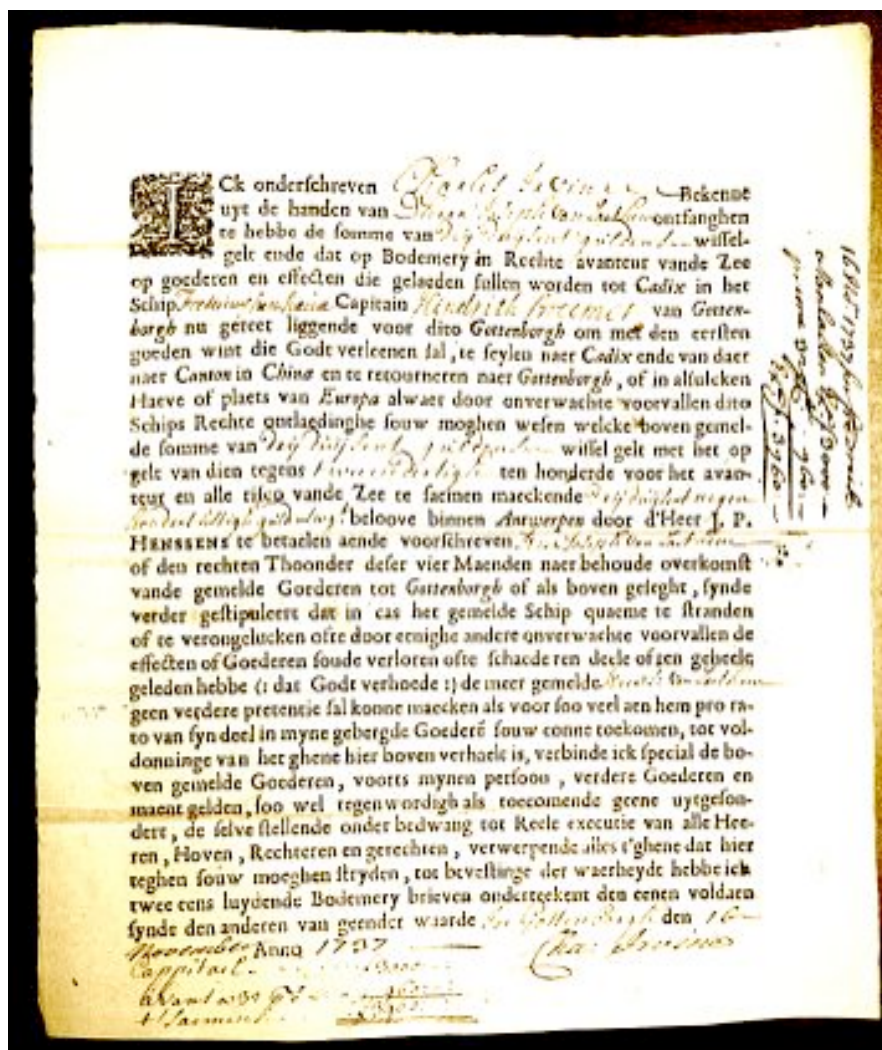 ICk onderschreven Charles Irvine Bekenne
uyt de handen van Joseph van ontfanghen
te hebbe de somme van dry duysent guldens wissel-
gelt ende dat op Bodemery in Rechte avanteur vande Zee
op goederen en effecten die gelaeden sullen worden tot Cadix in het
Schip Capitain Hendrick van Getten-
borgh nu gereet liggende voor dito Gottenborgh om met den eersten
goeden wint die Godt verleenen sal, te seylen naer Cadix ende van daer
naer Canton in China en te retourneren naer Gottenborgh, of in alsulcken
Haeve of plaets van Europa alwaer door onverwachte voorvallen dito
Schips Rechte ontlaedinghe souw moghen wesen welcke boven gemel-
de somme van dry duysent guldens wissel gelt met het op
gelt van dien tegens tweendertigh ten honderde voor het avan-
teur en alle risico vande Zee te saemen maeckende dry duysent negen
hondert sestigh guldens beloove binnen Antwerpen door d'Heer J. P.
HENSSENS te betaelen aende voorschreven Joseph van
of den rechten Thoonder deser vier Maenden naer behoude overkomst
vande gemelde Goederen tot Gottenborgh of als boven geleght, synde
verder gestipuleert dat in cas het gemelde Schip quaeme te stranden
of te verongelucken ofte door eenighe andere onverwachte voorvallen de
effecten of Goederen soude verloren ofte schaede ten deele of ten geheele
geleden hebbe (: dat Godt verhoede :) de meer gemelde
geen verdere pretentie sal konne maecken als voor soo veel aen hem pro ra-
to van syn deel in myne gebergde Goederē souw conne toekomen, tot vol-
donninge van het ghene hier boven verhaelt is, verbinde ick special de bo-
ven gemelde Goederen, voorts mynen persoon, verdere Goederen en
maent gelden, soo wel tegenwordigh als toecomende geene uytgeson-
dert, de selve stellende onder bedwang tot Reele executie van alle Hee-
ren, Hoven, Rechteren en gerechten, verwerpende alles t'ghene dat hier
teghen souw moeghen stryden, tot bevestinge der waerheyde hebbe ick
twee eens luydende Bodemery brieven onderteekent den eenen voldaen
synde den anderen van geender waarde In Gottenborgh den 16
November Anno 1737
Cha: Irvine
Cappitael 3000
avance 32 960
3960